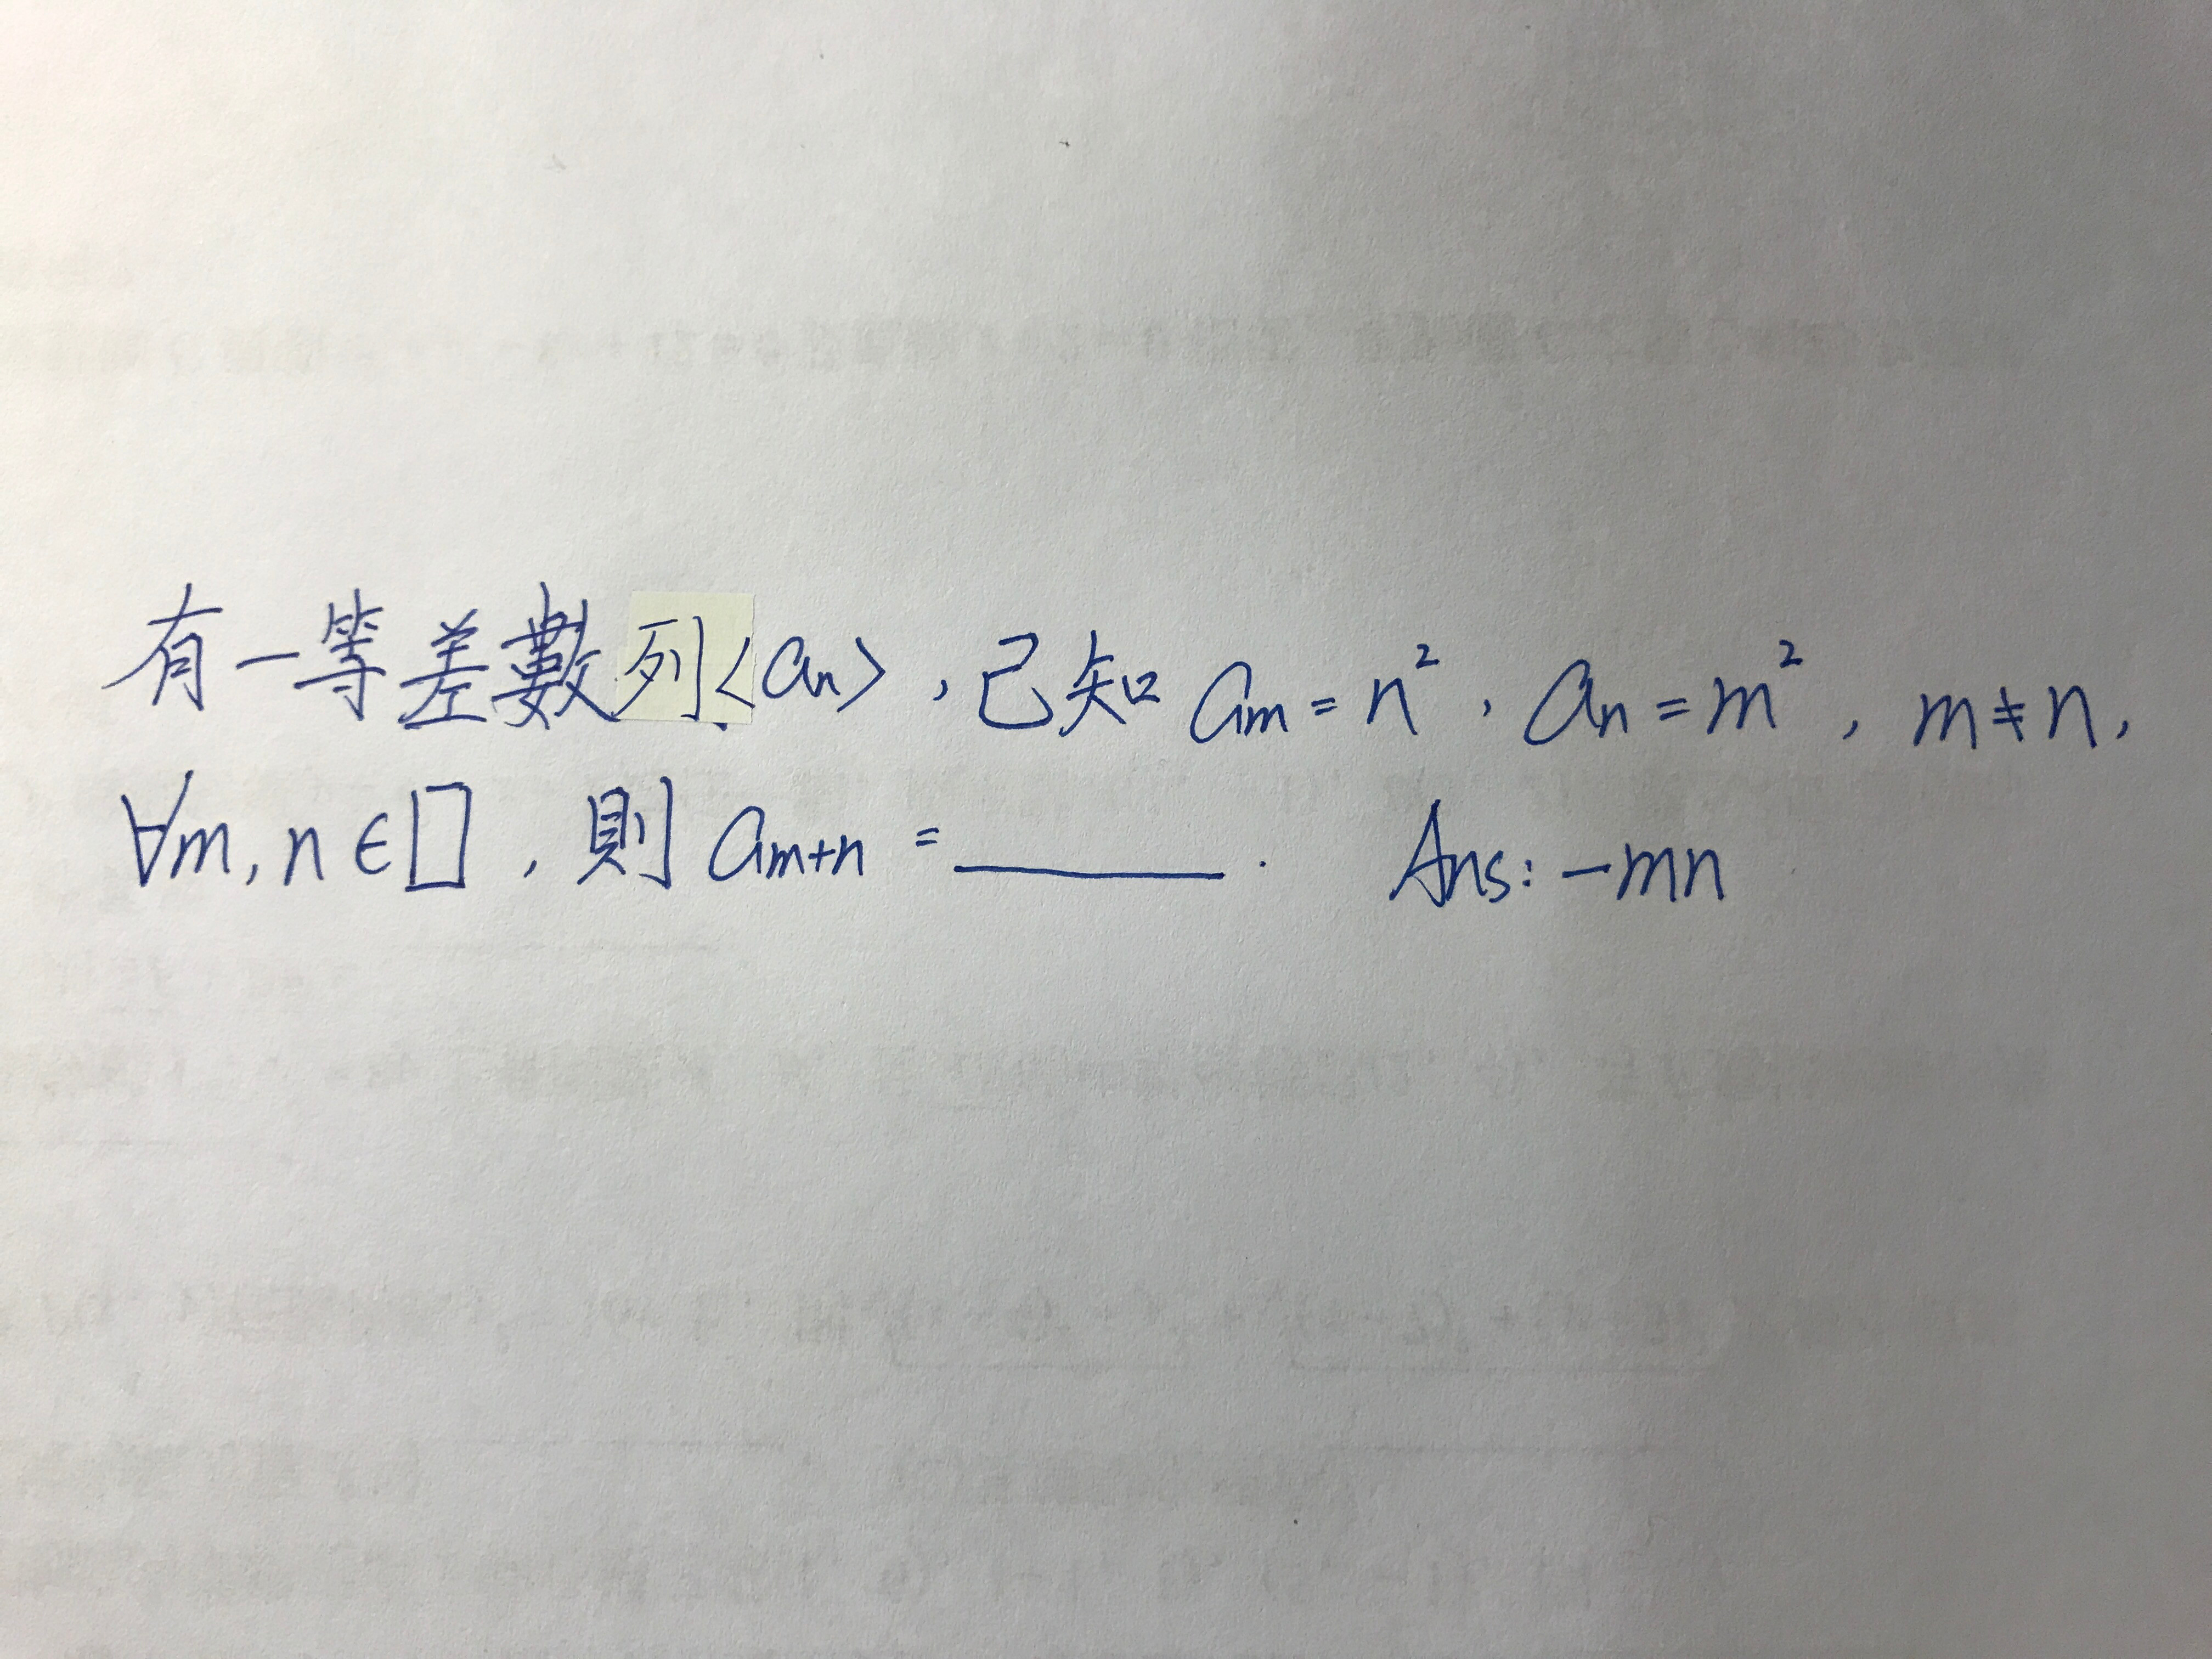 有一等差數列〈aₙ〉,已知 aₘ = n², aₙ = m², m≠n,
∀m, n ∈ [], 則 aₘ₊ₙ = ______. Ans: -mn